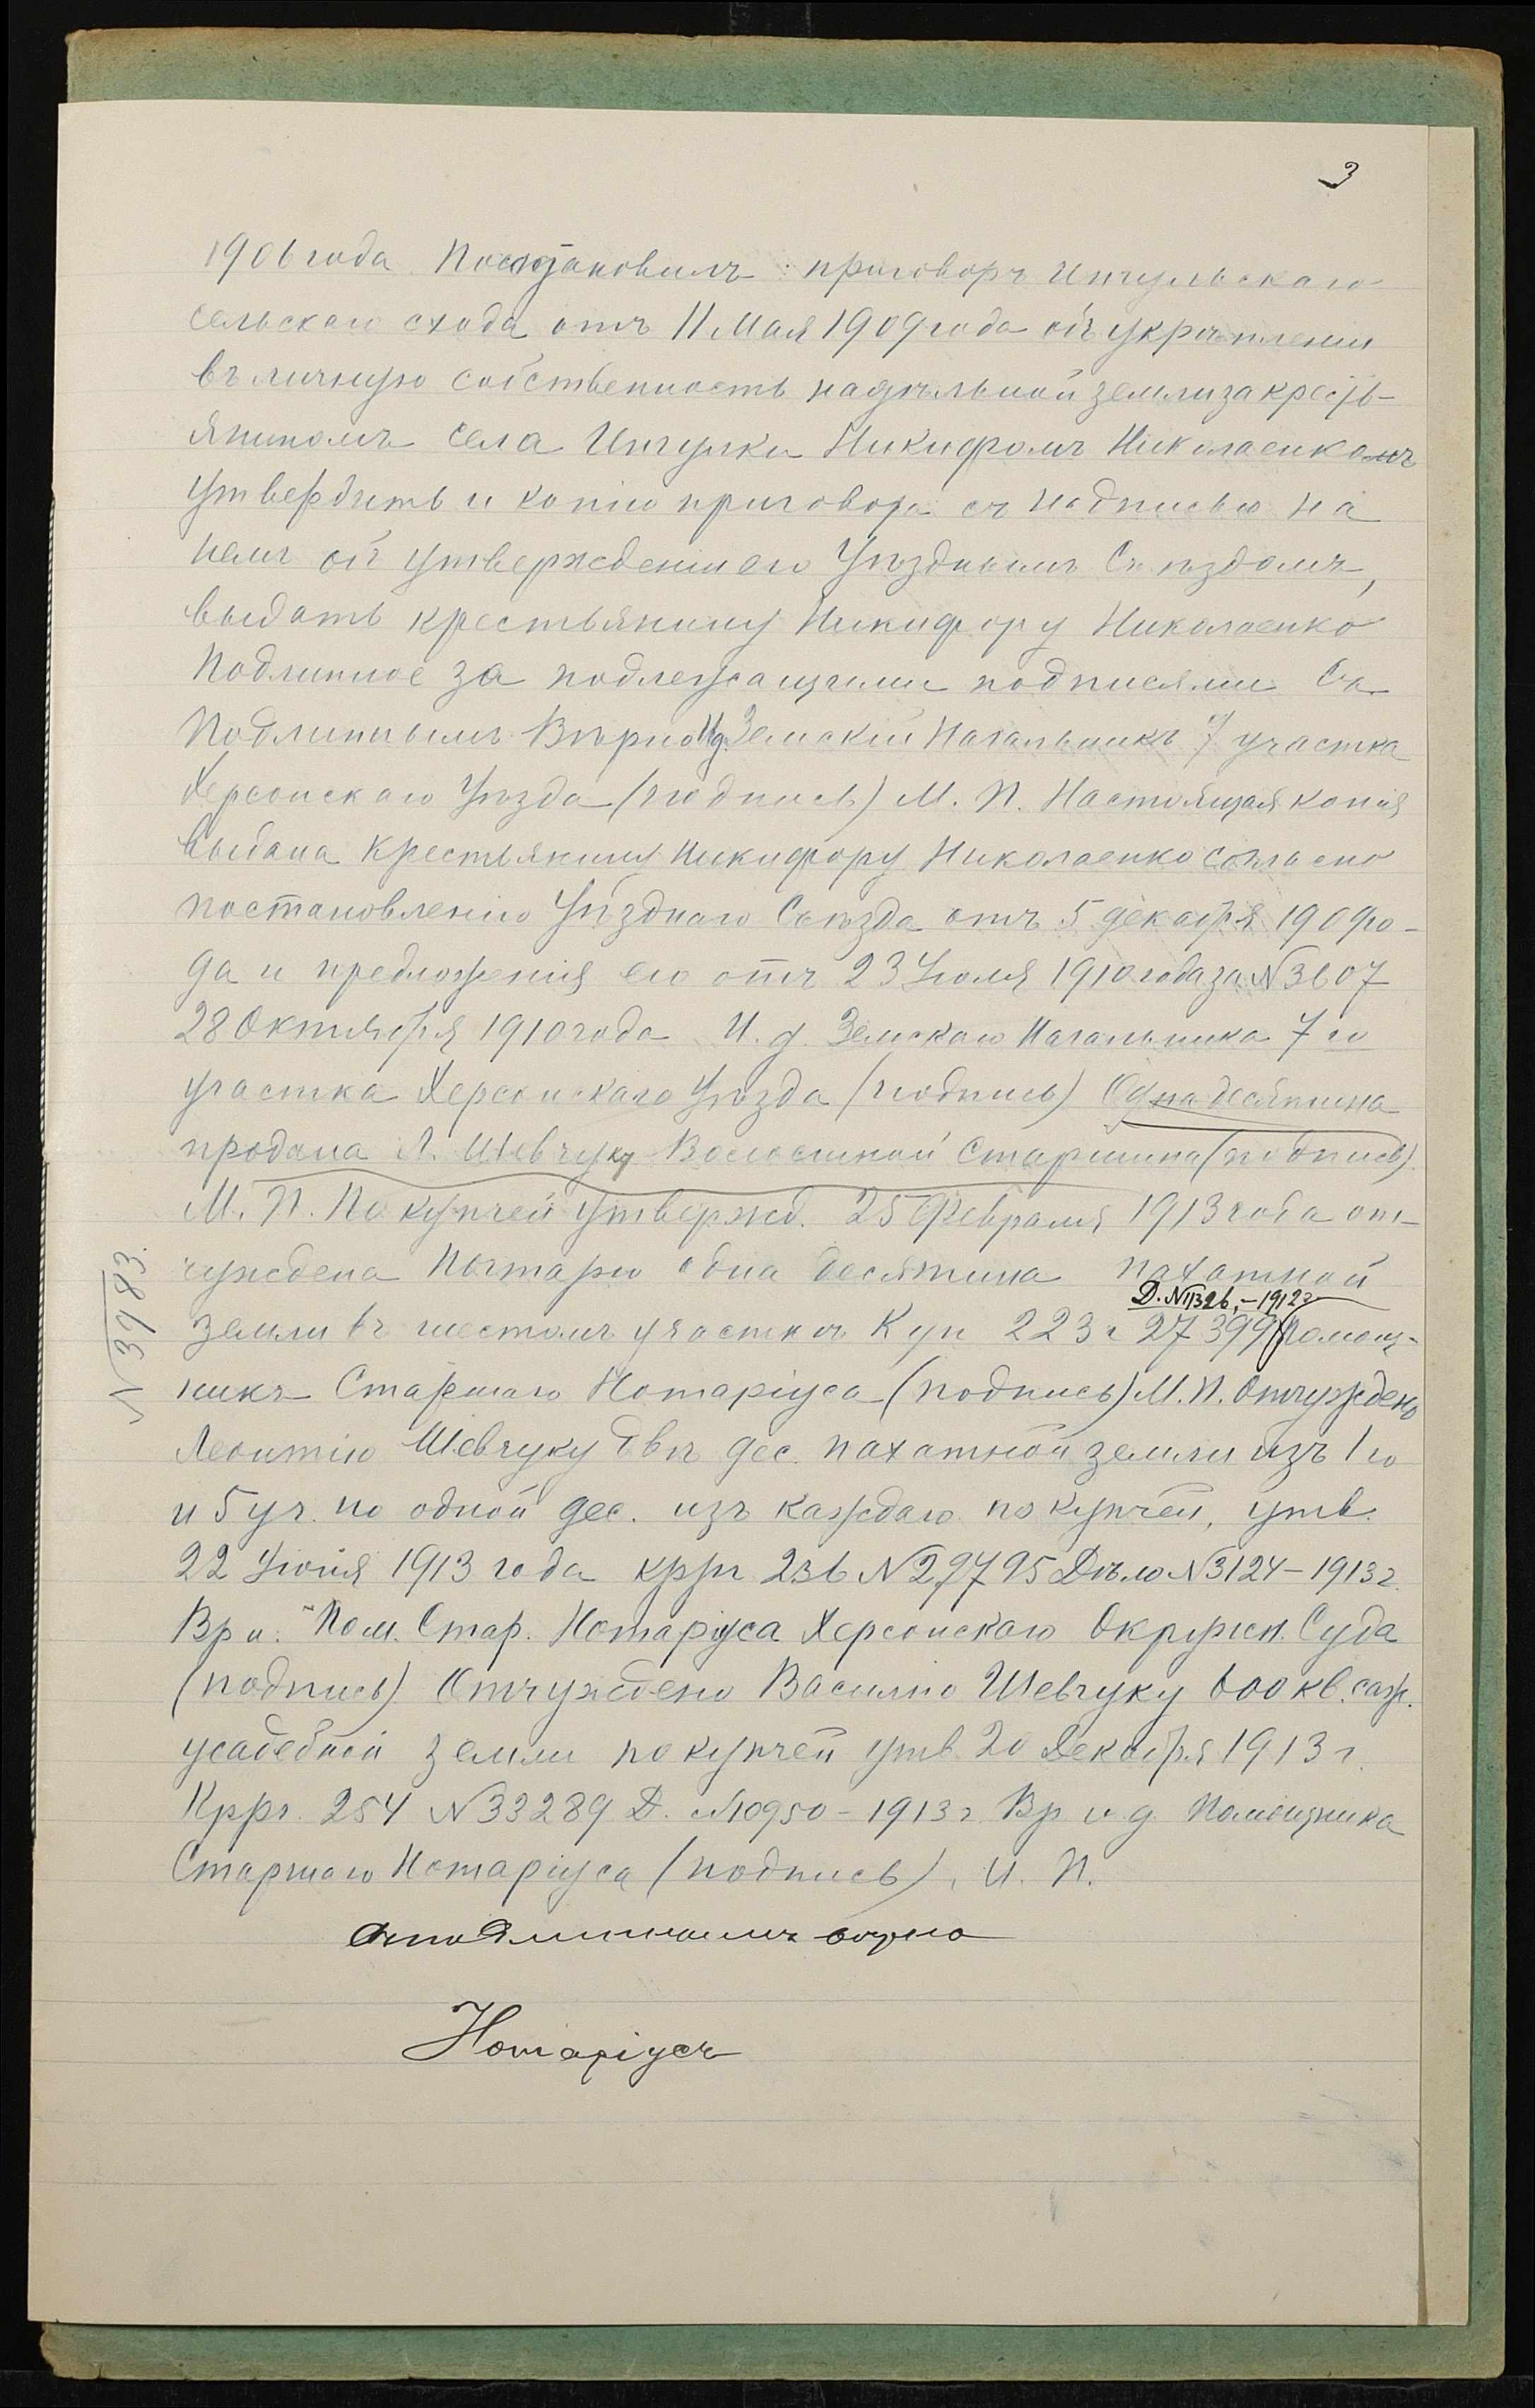 3
1906 года Постановилъ: приговоръ Ингульскаго
сельскаго схода отъ 11 Мая 1909 года объ укрѣпленіи
въ личную собственность надѣльной земли за кресть-
яниномъ села Ингулки Никифомъ Николаенкомъ
утвердить и копію приговора съ надписью на
немъ объ утвержденіи его Уѣзднымъ Съѣздомъ,
выдать крестьянину Никифору Николаенко
Подлинное за подлежащими подписями Съ
Подлиннымъ Вѣрно И. д. Земскій Начальникъ 7 участка
Херсонскаго Уѣзда (подпись) М. П. Настоящая копія
выдана крестьянину Никифору Николаенко согласно
постановленію Уѣзднаго Съѣзда отъ 5 декабря 1909 го-
да и предложенія его отъ 23 Іюля 1910 года за № 3607
28 Октября 1910 года И. д. Земскаго Начальника 7 го
участка Херсонскаго Уѣзда (подпись) Одна десятина
продана Л. Шевчуку Волостной Старшина (подпись).
М. П. По купчей утвержд. 25 Февраля 1913 года от-
чуждена Почтарю одна десятина пахатной
Д. № 11326,-1912 г.
земли въ шестомъ участкѣ Куп 223 г 27399 Помощ-
№ 3983.
никъ Старшаго Нотаріуса (подпись) М. П. Отчуждено
Леонтію Шевчуку двѣ дес. пахатной земли изъ 1 го
и 5 уч. по одной дес. изъ каждаго по купчей, утв.
22 Іюня 1913 года крѣп 236 № 29795 Дѣло № 3124-1913 г.
Вр и. Пом. Стар. Нотаріуса Херсонскаго Окружн. Суда
(подпись) Отчуждено Василію Шевчуку 600 кв. саж.
усадебной земли по купчей утв. 20 Декабря 1913 г.
254 № 33289 Д. № 10950-1913 г. Вр и. д. Помощника
Старшаго Нотаріуса (подпись), М. П.
Съ подлиннымъ вѣрно
Нотаріусъ